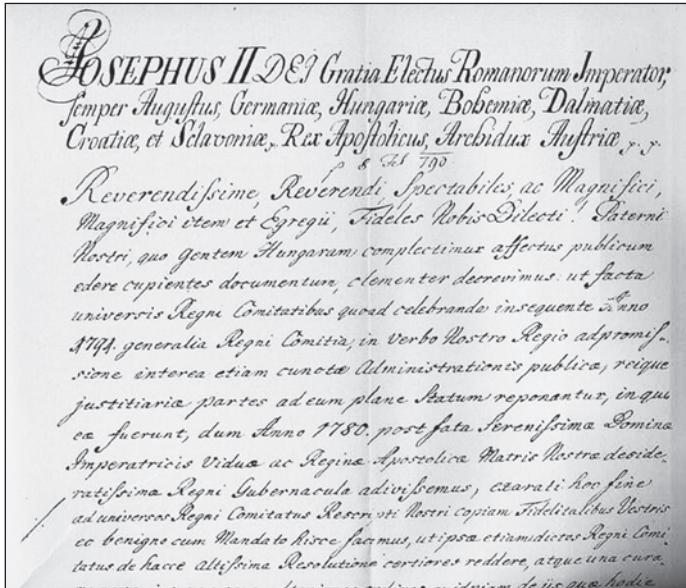 JOSEPHUS II DEI Gratia Electus Romanorum Imperator,
semper Augustus, Germaniæ, Hungariæ, Bohemiæ, Dalmatiæ,
Croatiæ, et Sclavoniæ, Rex Apostolicus, Archidux Austriæ
8 Feb 790
Reverendissime, Reverendi, Spectabiles, ac Magnifici,
Magnifici item et Egregii, Fideles Nobis Dilecti! Paterni
Nostri, quo Gentem Hungaram complectimur affectus publicum
edere cupientes documentum, clementer decrevimus: ut facta
universis Regni Comitatibus quoad celebranda insequente Anno
1791. generalia Regni Comitia, in verbo Nostro Regio adpromis-
sione interea etiam cunctæ Administrationis publicæ, reique
justitiariæ partes ad eum plane Statum reponantur, in quo
eæ fuerunt, dum Anno 1780. post fata Serenissimæ Dominæ
Imperatricis Viduæ ac Reginæ Apostolicæ Matris Nostræ deside-
ratissimæ Regni Gubernacula adivissemus, exarati hoc fine
ad universos Regni Comitatus Rescripti Nostri copiam Fidelitatibus Vestris
eo benigno cum Mandato hisce facimus, ut ipsæ etiam dictos Regni Comi-
tatus de hacce Altissima Resolutione certiores reddere, atque una cura-
quæ hodie